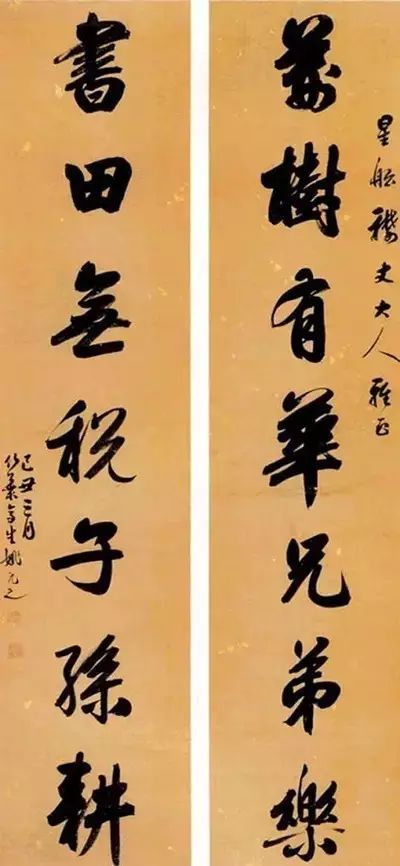 星舩穉丈大人雅正
荊樹有華兄弟樂
書田無稅子孫耕
己丑三月
竹葉亭生姚元之